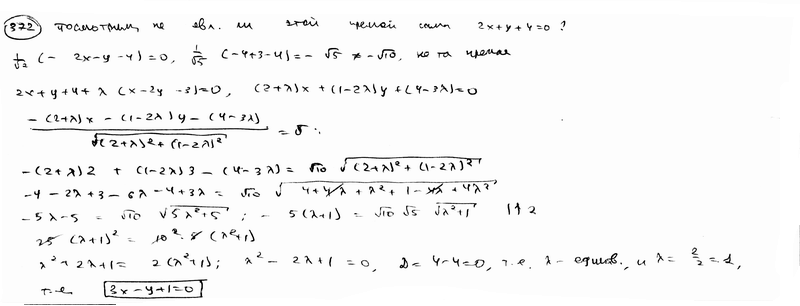 372 Посмотрим, не явл. ли этой прямой сама 2x+y+4=0?
1/√2 (- 2x-y-4)=0, 1/√5 (-4+3-4)=-√5 ≠ -√10, не та прямая
2x+y+4+λ(x-2y-3)=0, (2+λ)x+(1-2λ)y+(4-3λ)=0
(-(2+λ)x-(1-2λ)y-(4-3λ))/√((2+λ)²+(1-2λ)²) = δ:
-(2+λ)2+(1-2λ)3-(4-3λ)=√10 √((2+λ)²+(1-2λ)²)
-4-2λ+3-6λ-4+3λ=√10 √(4+4λ+λ²+1-4λ+4λ²)
-5λ-5=√10 √(5λ²+5); -5(λ+1)=√10 √5 √(λ²+1) |↑2
25(λ+1)²=10²·5(λ²+1)
λ²+2λ+1=2(λ²+1); λ²-2λ+1=0, D=4-4=0, т.е. λ- единств., и λ=2/2=1,
т.е. 3x-y+1=0